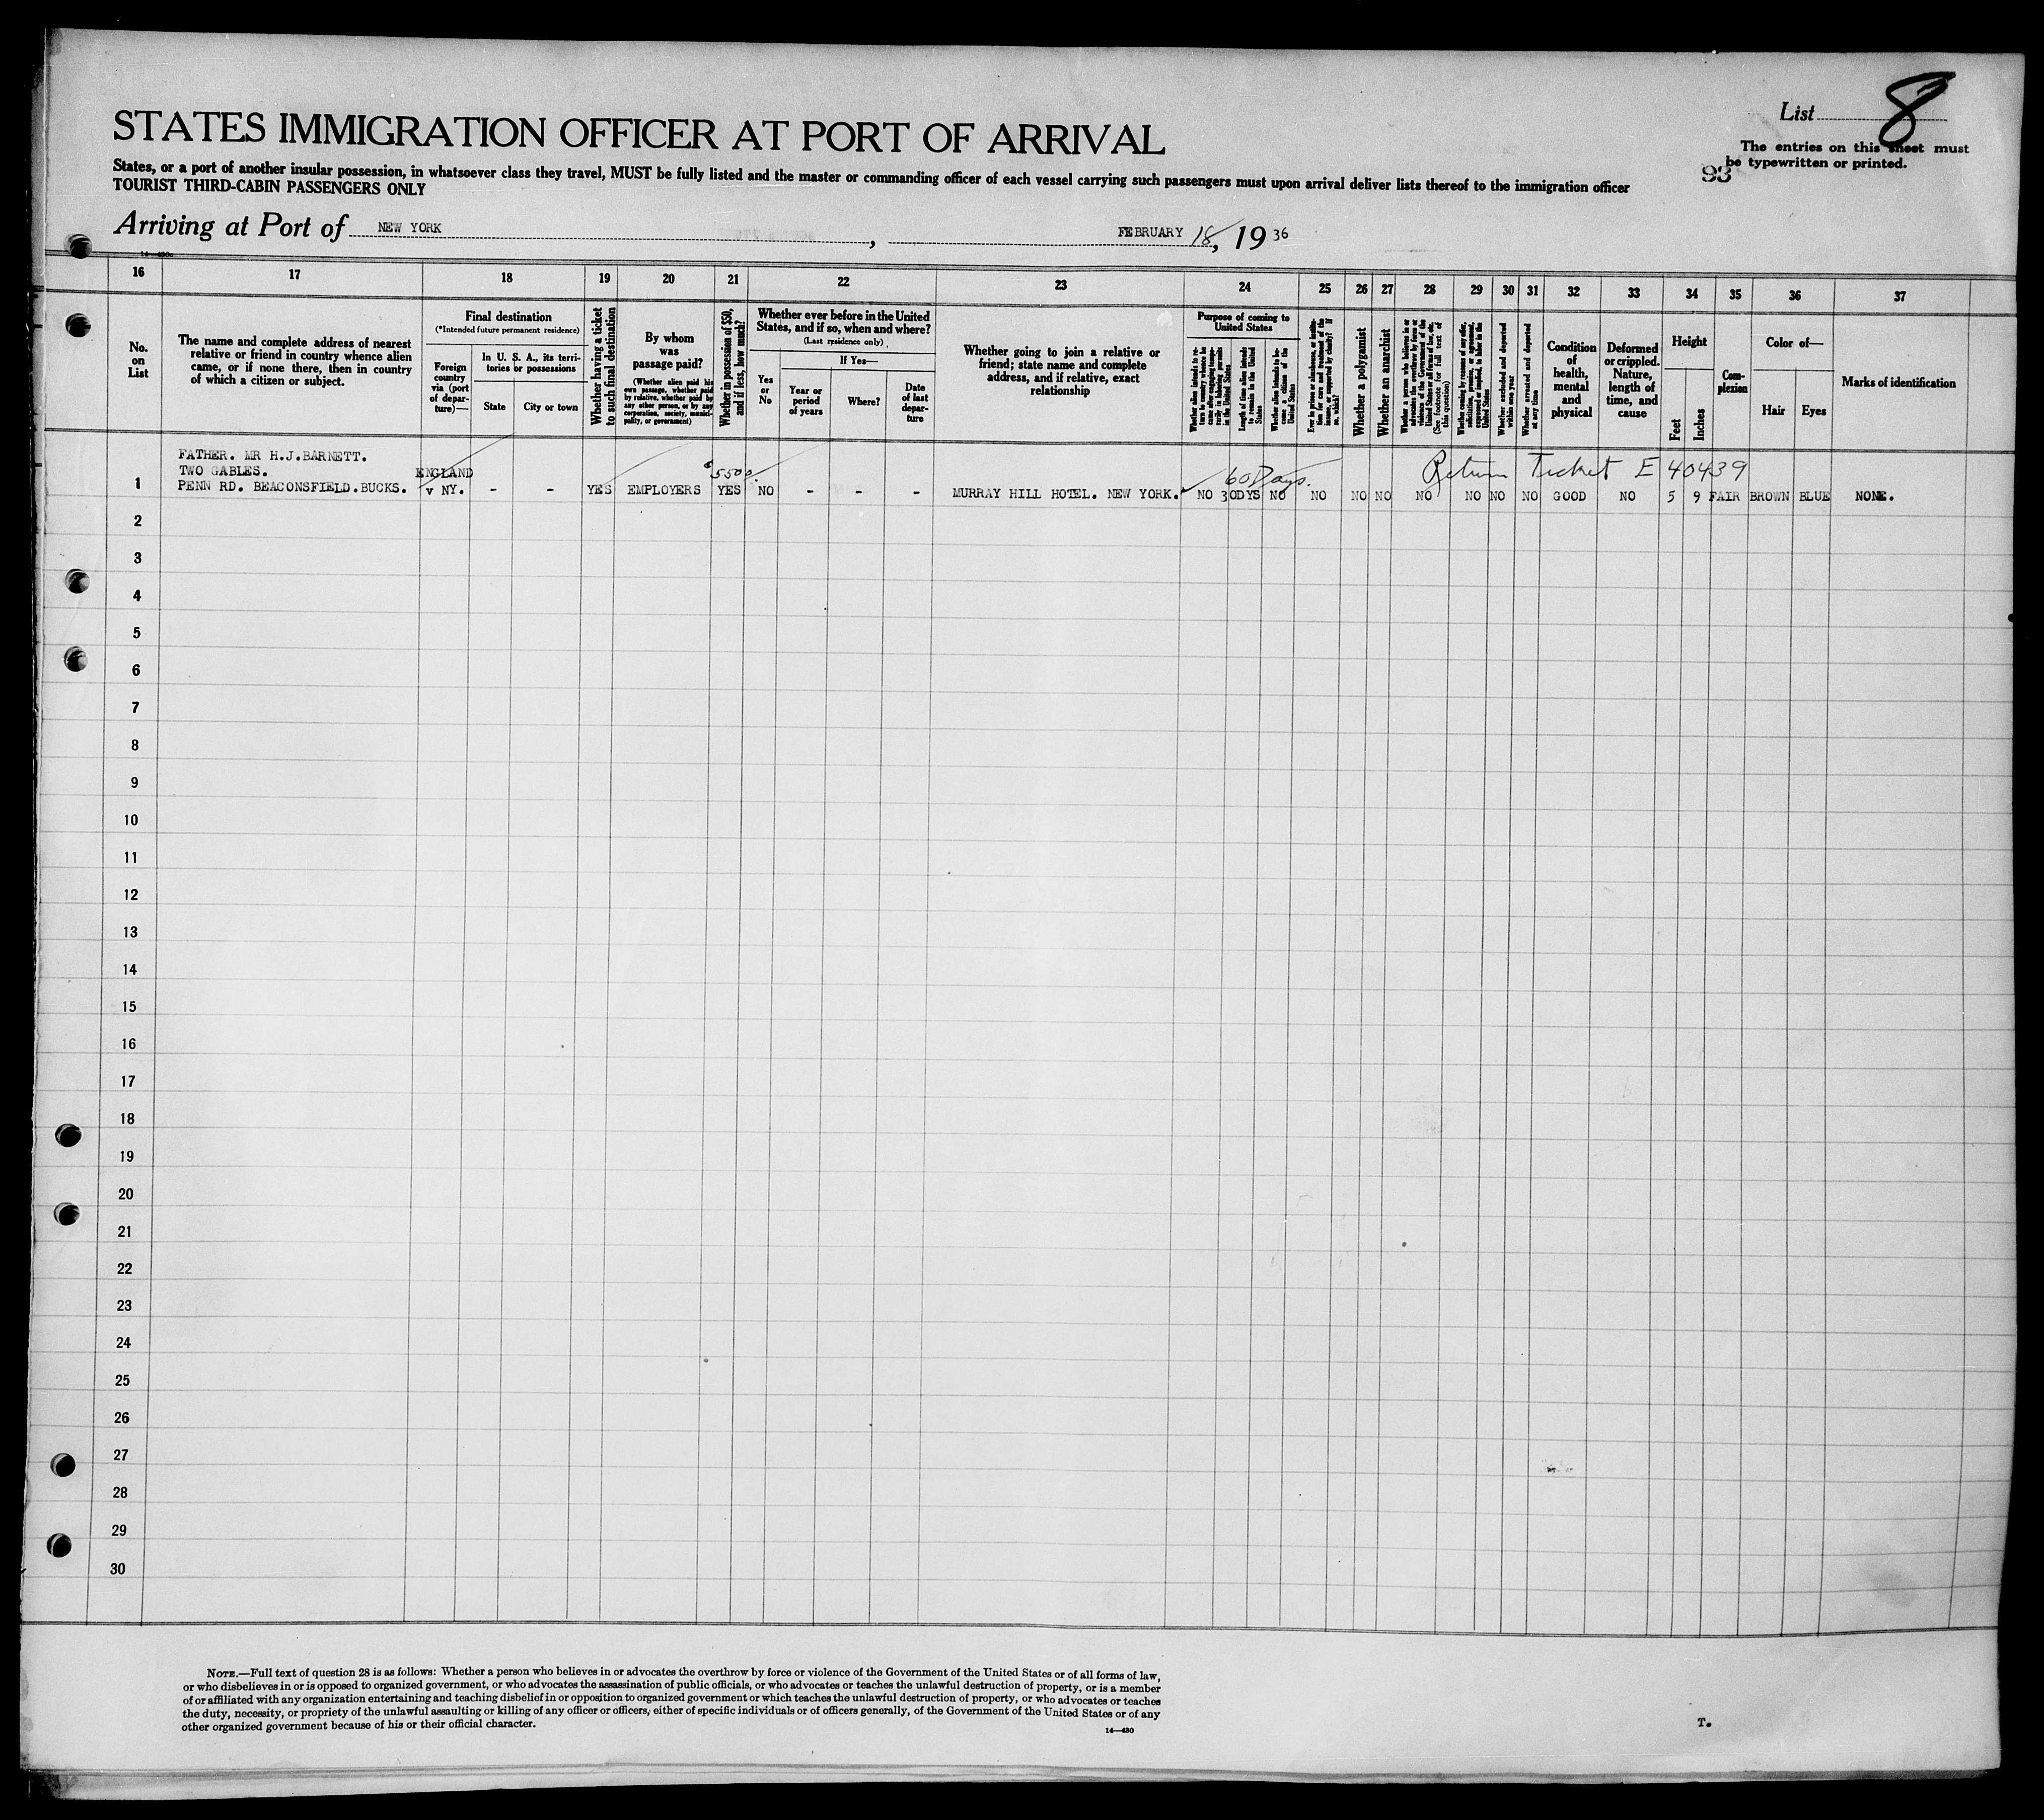 List 8
The entries on this sheet must
be typewritten or printed.
93
STATES IMMIGRATION OFFICER AT PORT OF ARRIVAL
States, or a port of another insular possession, in whatsoever class they travel, MUST be fully listed and the master or commanding officer of each vessel carrying such passengers must upon arrival deliver lists thereof to the immigration officer
TOURIST THIRD-CABIN PASSENGERS ONLY
Arriving at Port of NEW YORK, FEBRUARY 18, 1936
16 17 18 19 20 21 22 23 24 25 26 27 28 29 30 31 32 33 34 35 36 37
No.
on
List
The name and complete address of nearest
relative or friend in country whence alien
came, or if none there, then in country
of which a citizen or subject.
Final destination
(*Intended future permanent residence)
Foreign
country
via (port
of depar-
ture)—
In U. S. A., its terri-
tories or possessions
State
City or town
Whether having a ticket
to such final destination
By whom
was
passage paid?
(Whether alien paid his
own passage, whether paid
by relative, whether paid by
any other person, or by any
corporation, society, munici-
pality, or government)
Whether in possession of $50,
and if less, how much?
Whether ever before in the United
States, and if so, when and where?
(Last residence only)
Yes
or
No
If Yes—
Year or
period
of years
Where?
Date
of last
depar-
ture
Whether going to join a relative or
friend; state name and complete
address, and if relative, exact
relationship
Purpose of coming to
United States
Whether alien intends to re-
turn to country whence he
came after engaging tempo-
rarily in laboring pursuits
in the United States
Length of time alien intends
to remain in the United
States
Whether alien intends to be-
come a citizen of the
United States
Ever in prison or almshouse, or institu-
tion for care and treatment of the
insane, or supported by charity? If
so, which?
Whether a polygamist
Whether an anarchist
Whether a person who believes in or
advocates the overthrow by force or
violence of the Government of the
United States or all forms of law, etc.
(See footnote for full text of
this question)
Whether coming by reason of any offer,
solicitation, promise, or agreement,
expressed or implied, to labor in the
United States
Whether excluded and deported
within one year
Whether arrested and deported
at any time
Condition
of
health,
mental
and
physical
Deformed
or crippled.
Nature,
length of
time, and
cause
Height
Feet
Inches
Com-
plexion
Color of—
Hair
Eyes
Marks of identification
FATHER. MR H.J.BARNETT.
TWO GABLES. ENGLAND $5500. 60 Days. Return Ticket E 40439
1 PENN RD. BEACONSFIELD.BUCKS. v NY. - - YES EMPLOYERS YES NO - - - MURRAY HILL HOTEL. NEW YORK. NO 30DYS NO NO NO NO NO NO NO NO GOOD NO 5 9 FAIR BROWN BLUE NONE.
2
3
4
5
6
7
8
9
10
11
12
13
14
15
16
17
18
19
20
21
22
23
24
25
26
27
28
29
30
NOTE.—Full text of question 28 is as follows: Whether a person who believes in or advocates the overthrow by force or violence of the Government of the United States or of all forms of law,
or who disbelieves in or is opposed to organized government, or who advocates the assassination of public officials, or who advocates or teaches the unlawful destruction of property, or is a member
of or affiliated with any organization entertaining and teaching disbelief in or opposition to organized government or which teaches the unlawful destruction of property, or who advocates or teaches
the duty, necessity, or propriety of the unlawful assaulting or killing of any officer or officers, either of specific individuals or of officers generally, of the Government of the United States or of any
other organized government because of his or their official character.
14—430
T.